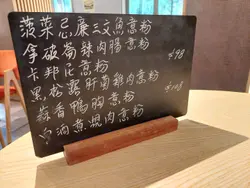 菠菜忌廉三文魚意粉
拿破崙辣肉腸意粉
卡邦尼意粉 $98
黑松露肝菌雞肉意粉
蒜香鴨胸意粉 $108
白酒煮蜆肉意粉